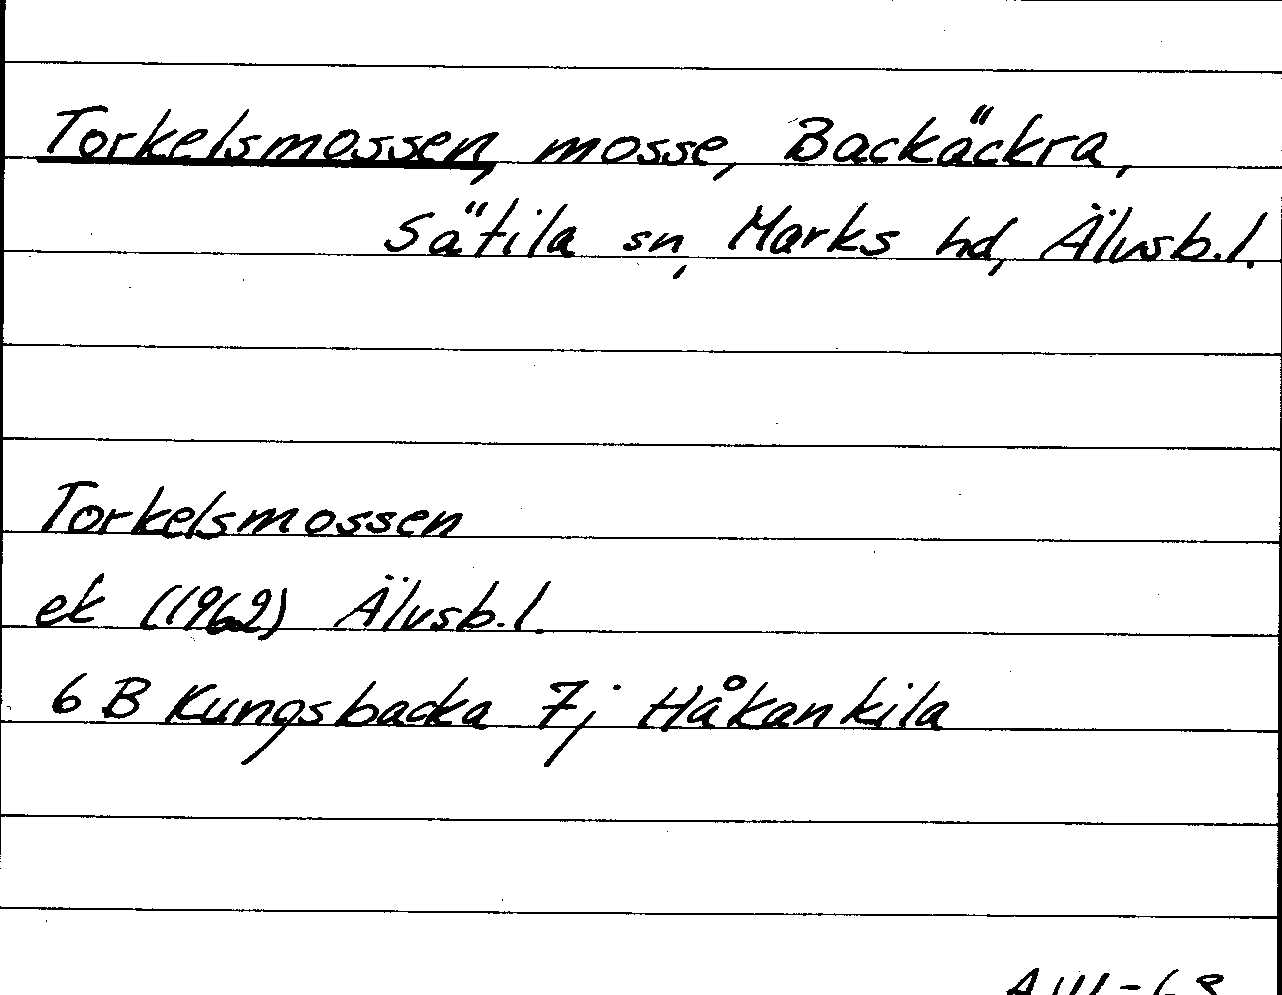 Torkelsmossen, mosse, Backäckra,
Sätila sn, Marks hd, Älvsb.l.
Torkelsmossen
ek (1962) Älvsb.l.
6 B Kungsbacka 7j Håkankila